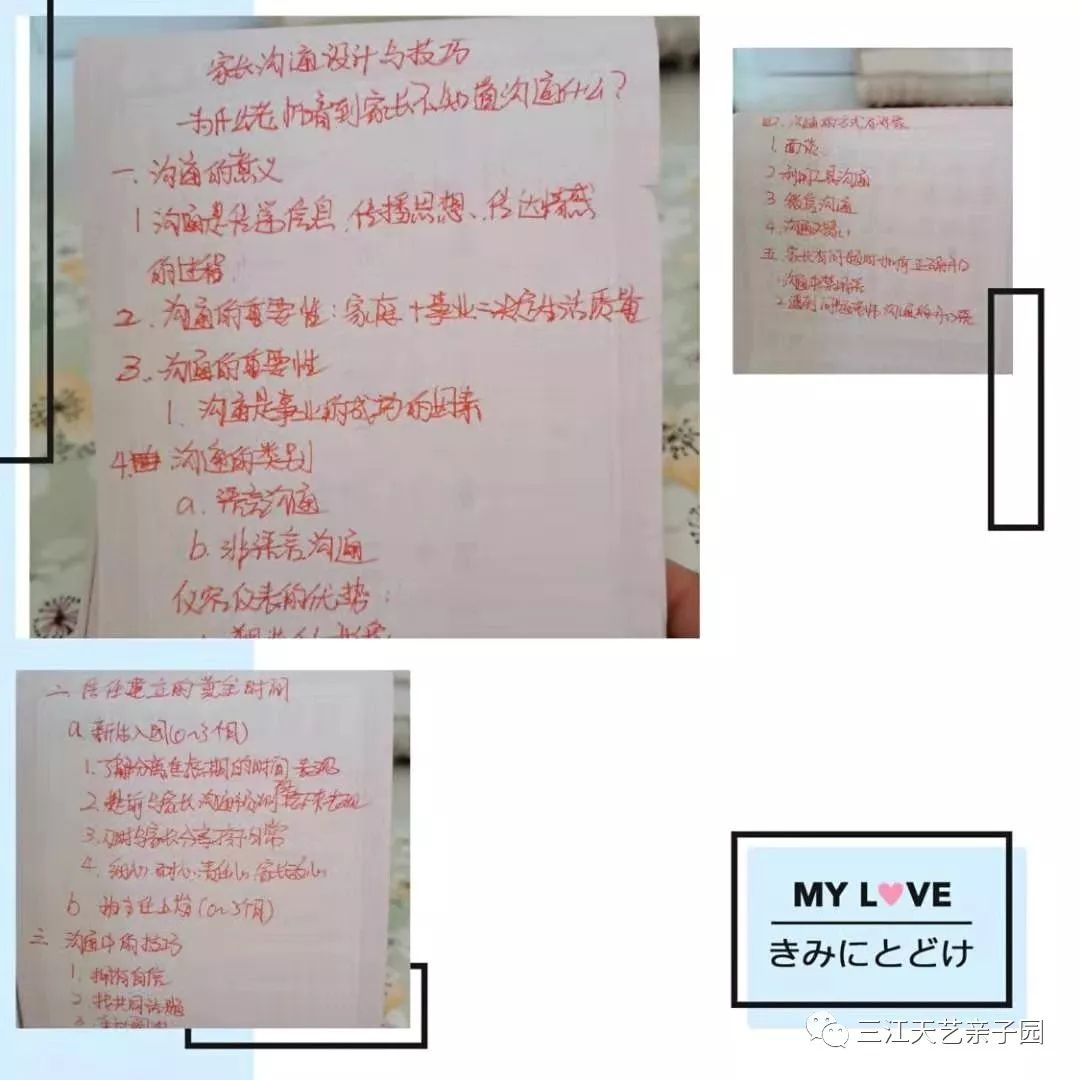 家长沟通设计与技巧
—为什么老师看到家长不知道沟通什么？
一、沟通的意义
1 沟通是传递信息、传播思想、传达情感
的过程
2、沟通的重要性：家庭+事业=决定生活质量
3、沟通的重要性
1、沟通是事业的成功的因素
4 沟通的类别
a、语言沟通
b、非语言沟通
仪容仪表的优势：
四、沟通的方式有哪些
1 面谈
2 利用工具沟通
3 微信沟通
4、沟通
五 家长有问题时如何正确开口
1 沟通中禁用语
2 遇到问题 沟通的
二、信任建立的黄金时间
a 新生入园(0~3个月)
1、了解分离焦虑期的时间表现
2、提前与家长沟通
3、及时与家长分享孩子日常
4、细心、耐心、责任心
b (0~3个月)
三、沟通中的技巧
1、拥有自信
2、找共同话题
3
MY L♥VE
きみにとどけ
三江天艺亲子园